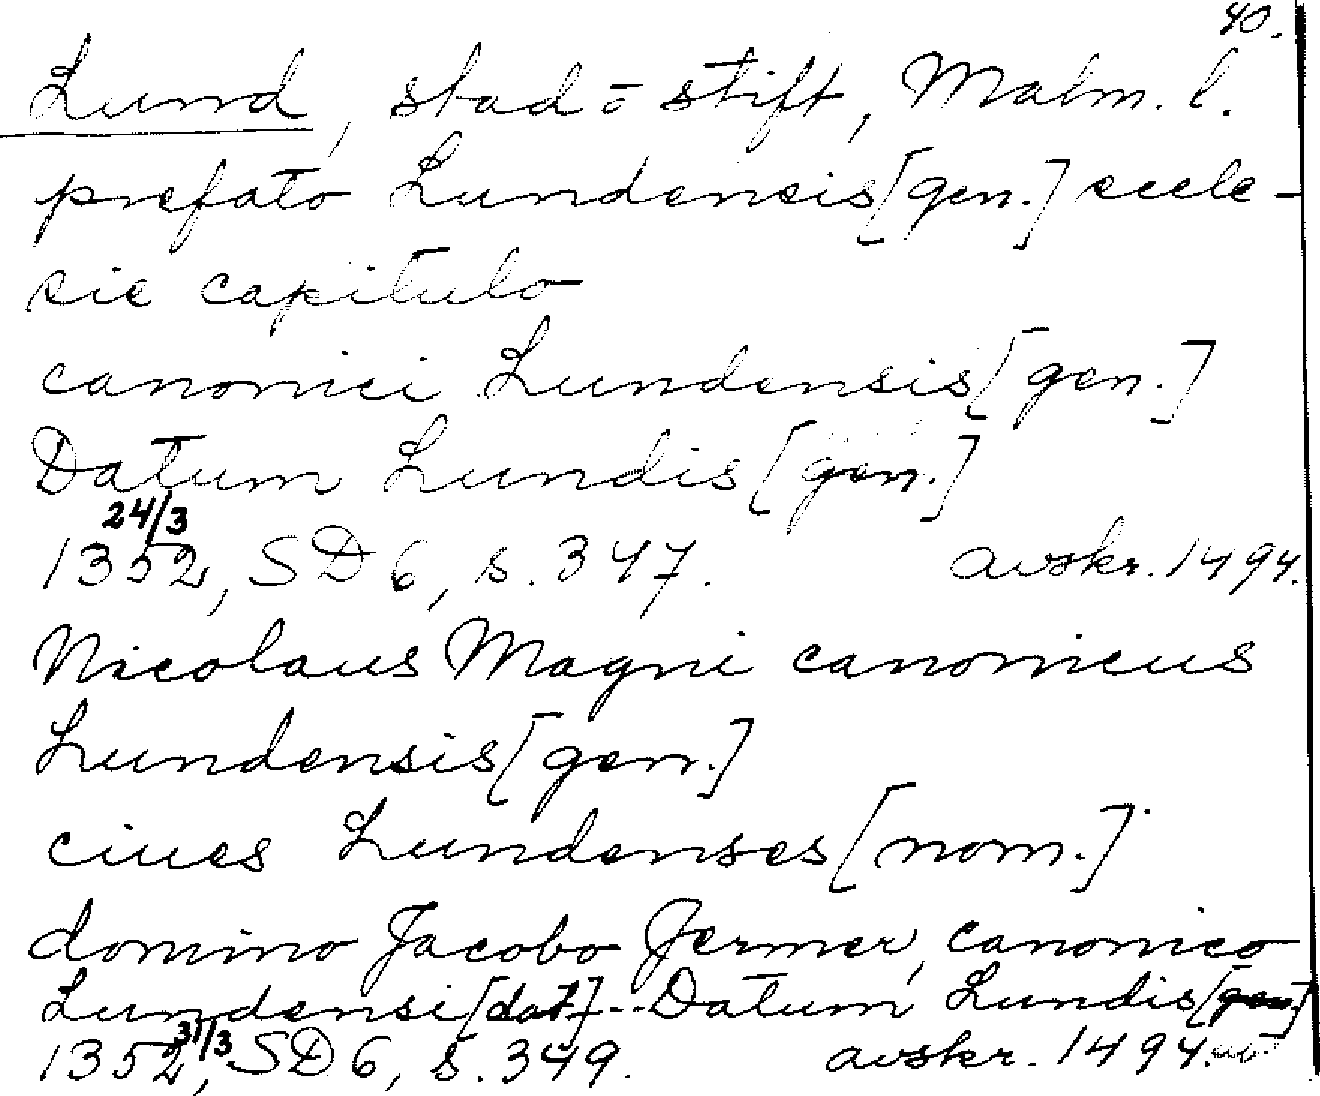 40.
Lund, stad o stift, Malm. l.
prefato Lundensis [gen.] eccle-
sie capitulo
canonici Lundensis [gen.]
Datum Lundis [gen.]
24/3
1352, SD 6, s. 347. avskr. 1494.
Nicolaus Magni canonicus
Lundensis [gen.]
ciues Lundenses [nom.]
domino Jacobo Jermer, canonico
Lundensi [dat] - - Datum Lundis [gen]
31/3
1352, SD 6, s. 349. avskr. 1494.